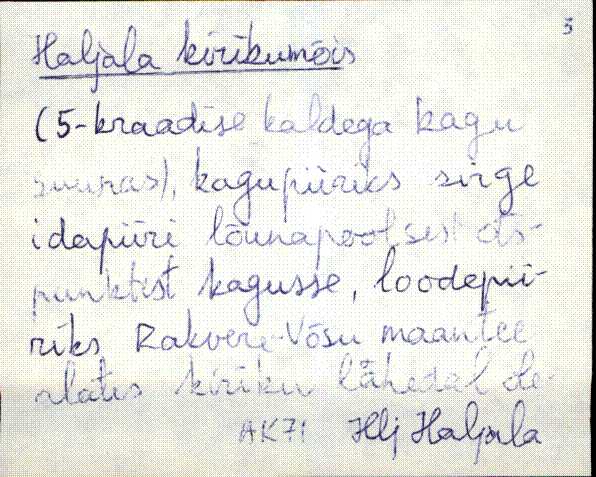 3
Haljala kirikumõis
(5-kraadise kaldega kagu
suunas), kagupiiriks sirge
idapiiri lõunapoolsest ots-
punktist kagusse, loodepii-
riks Rakvere-Võsu maantee
alates kiriku lähedal ole-
AK71 Hlj Haljala